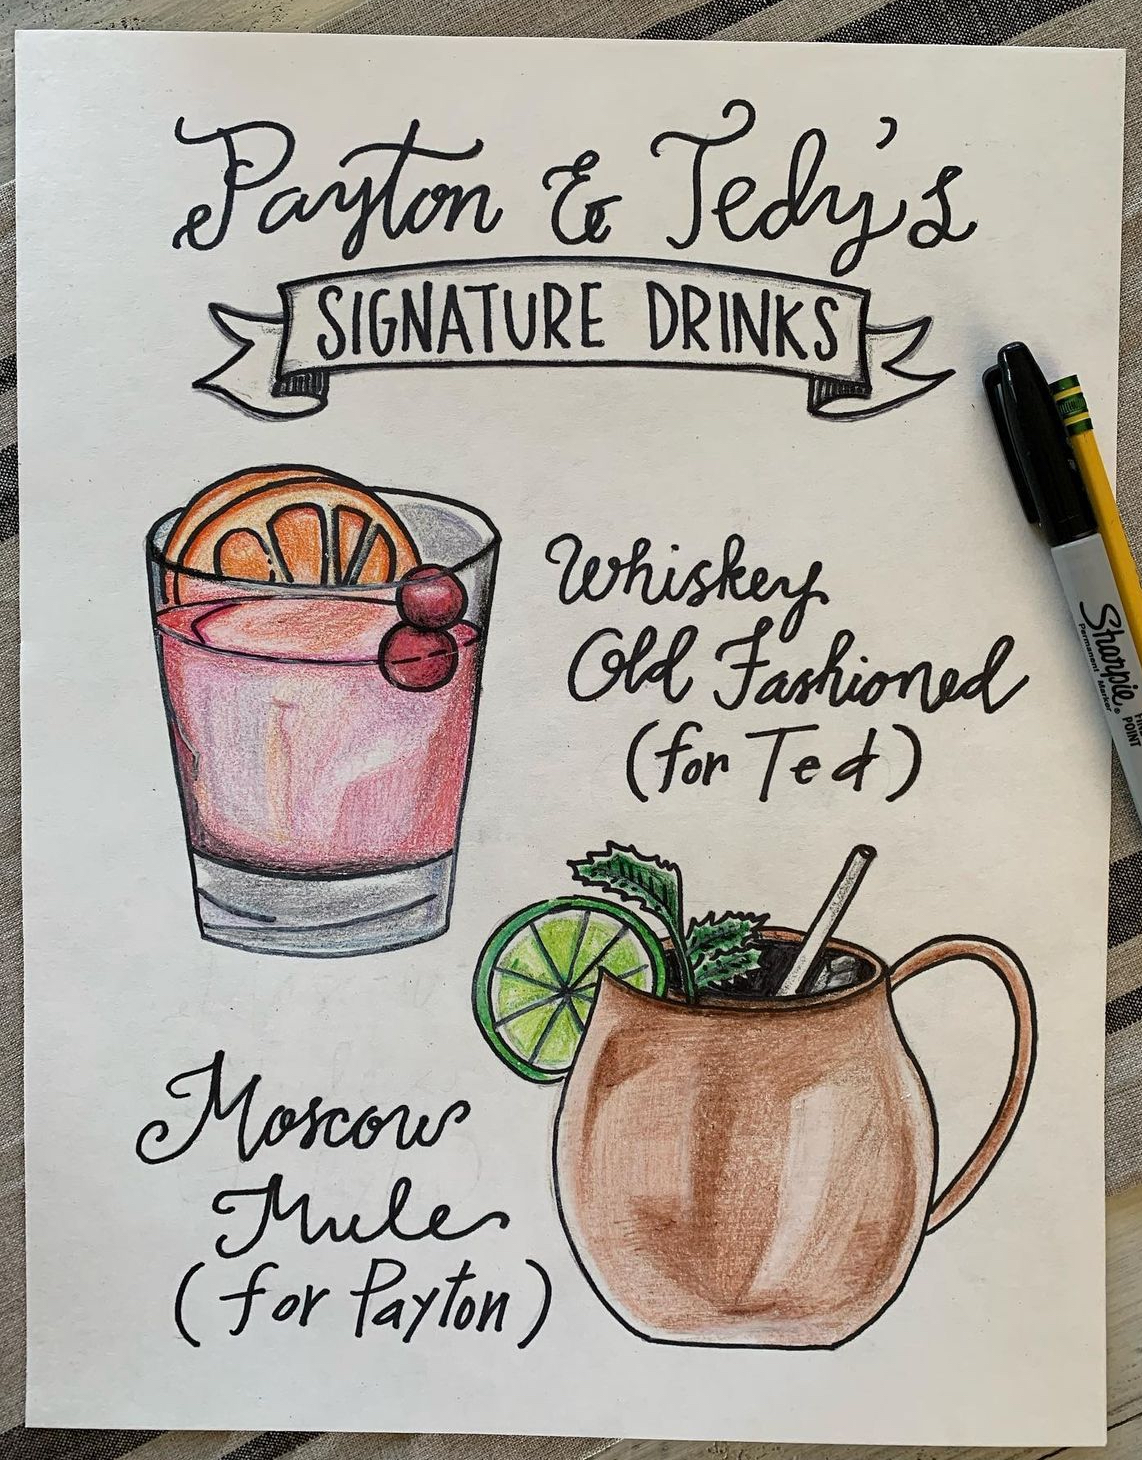 Payton & Tedy's
SIGNATURE DRINKS
Whiskey
Old Fashioned
(for Ted)
Moscow
Mule
(for Payton)
Sharpie
Permanent Marker
POINT